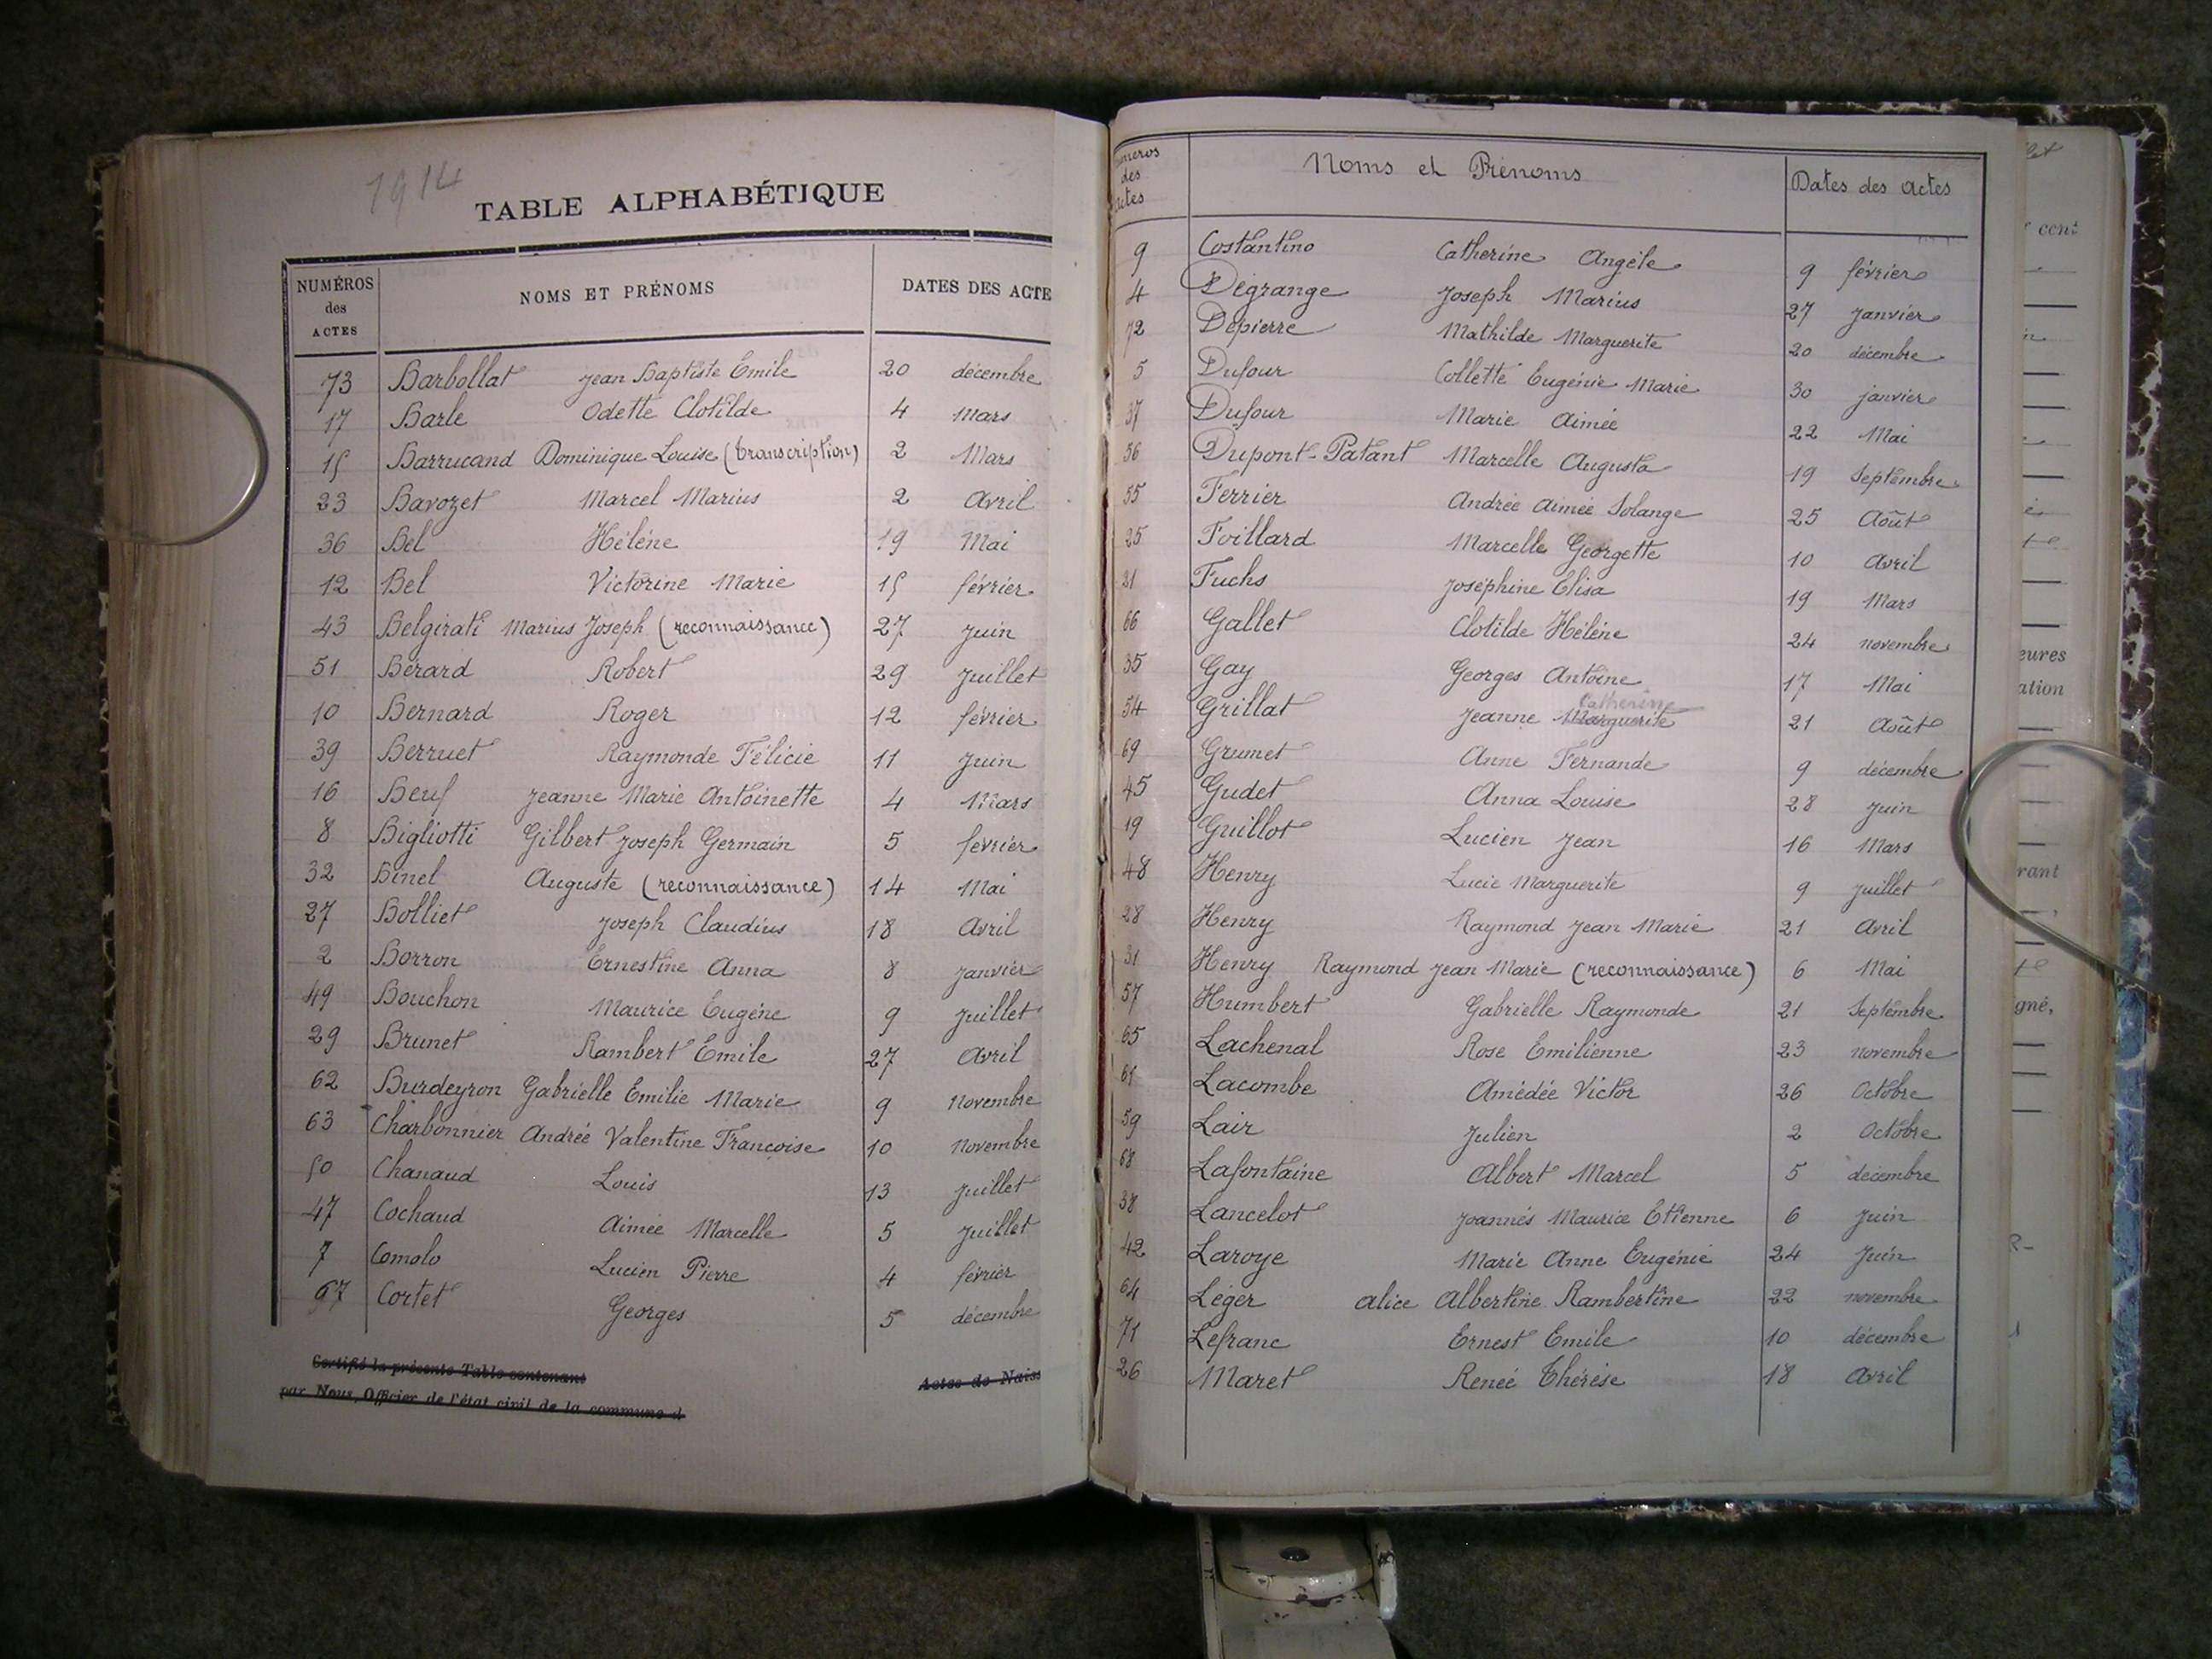 1914
TABLE ALPHABÉTIQUE
NUMÉROS des ACTES NOMS ET PRÉNOMS DATES DES ACTE
73 Barbollat Jean Baptiste Emile 20 décembre
17 Barle Odette Clotilde 4 Mars
15 Barrucand Dominique Louise (transcription) 2 Mars
23 Bavozet Marcel Marius 2 Avril
36 Bel Hélène 19 Mai
12 Bel Victorine Marie 15 février
43 Belgirati Marius Joseph (reconnaissance) 27 Juin
51 Bérard Robert 29 Juillet
10 Bernard Roger 12 février
39 Berruet Raymonde Félicie 11 Juin
16 Beuf Jeanne Marie Antoinette 4 Mars
8 Bigliotti Gilbert Joseph Germain 5 février
32 Binel Auguste (reconnaissance) 14 Mai
27 Bolliet Joseph Claudius 18 Avril
2 Borron Ernestine Anna 8 Janvier
49 Bouchon Maurice Eugène 9 Juillet
29 Brunet Rambert Emile 27 Avril
62 Burdeyron Gabrielle Emilie Marie 9 Novembre
63 Charbonnier Andrée Valentine Françoise 10 Novembre
50 Chanaud Louis 13 Juillet
47 Cochaud Aimée Marcelle 5 Juillet
7 Comolo Lucien Pierre 4 février
67 Cortet Georges 5 décembre
Certifié la présente Table contenant Actes de Naiss
par Nous, Officier de l'état civil de la commune d
uméros des actes Noms et Prénoms Dates des actes
9 Costantino Catherine Angèle 9 février
4 Dégrange Joseph Marius 27 janvier
72 Depierre Mathilde Marguerite 20 décembre
5 Dufour Collette Eugénie Marie 30 janvier
37 Dufour Marie Aimée 22 Mai
56 Dupont-Patant Marcelle Augusta 19 Septembre
55 Ferrier Andrée Aimée Solange 25 Août
25 Foillard Marcelle Georgette 10 Avril
21 Fuchs Joséphine Elisa 19 Mars
66 Gallet Clotilde Hélène 24 novembre
35 Gay Georges Antoine 17 Mai
Catherine
54 Grillat Jeanne Marguerite 21 Août
69 Grumet Anne Fernande 9 décembre
45 Gudet Anna Louise 28 Juin
19 Guillot Lucien Jean 16 Mars
48 Henry Lucie Marguerite 9 Juillet
28 Henry Raymond Jean Marie 21 Avril
31 Henry Raymond Jean Marie (reconnaissance) 6 Mai
57 Humbert Gabrielle Raymonde 21 Septembre
65 Lachenal Rose Emilienne 23 novembre
61 Lacombe Amédée Victor 26 Octobre
59 Lair Julien 2 Octobre
68 Lafontaine Albert Marcel 5 décembre
38 Lancelot Joannés Maurice Etienne 6 Juin
42 Laroye Marie Anne Eugénie 24 Juin
64 Léger Alice Albertine Rambertine 22 novembre
71 Lefranc Ernest Emile 10 décembre
26 Maret Renée Thérèse 18 Avril
eures
ation
rant
gné,